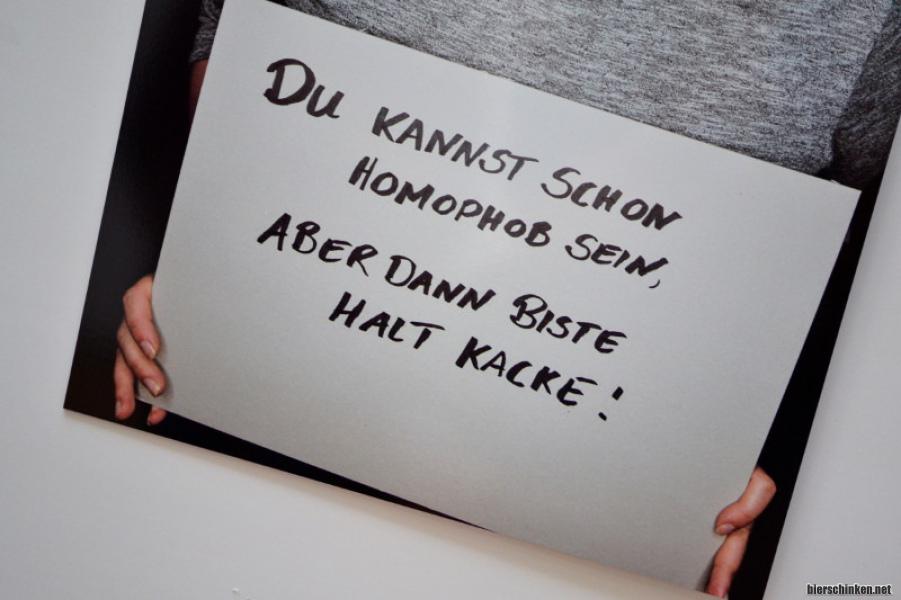 Du KANNST SCHON
HOMOPHOB SEIN,
ABER DANN BISTE
HALT KACKE!
bierschinken.net